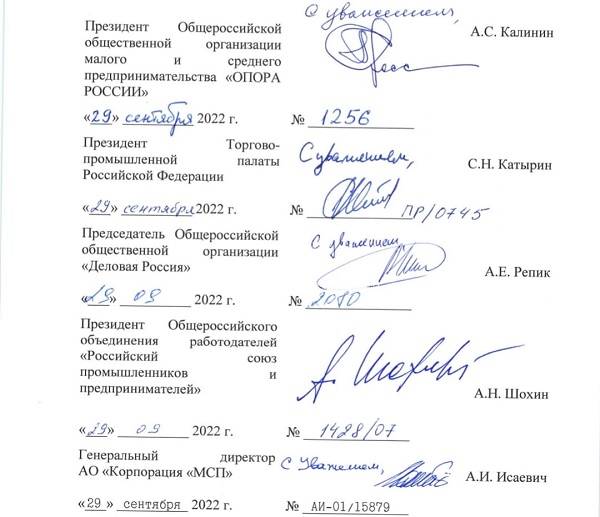 Президент Общероссийской
общественной организации
малого и среднего
предпринимательства «ОПОРА
РОССИИ»
С уважением,
А.С. Калинин
«29» сентября 2022 г. № 1256
Президент Торгово-
промышленной палаты
Российской Федерации
С уважением,
С.Н. Катырин
«29» сентября 2022 г. № ПР/0745
Председатель Общероссийской
общественной организации
«Деловая Россия»
С уважением
А.Е. Репик
«29» 09 2022 г. № 2080
Президент Общероссийского
объединения работодателей
«Российский союз
промышленников и
предпринимателей»
А. Шохин
А.Н. Шохин
«29» 09 2022 г. № 1428/07
Генеральный директор
АО «Корпорация «МСП»
С уважением,
А.И. Исаевич
«29» сентября 2022 г. № АИ-01/15879